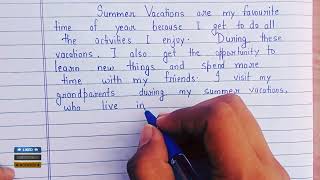 Summer Vacations are my favourite
time of year because I get to do all
the activities I enjoy. During these
vacations, I also get the opportunity to
learn new things and spend more
time with my friends. I visit my
grandparents during my summer vacations,
who live in
LIKED